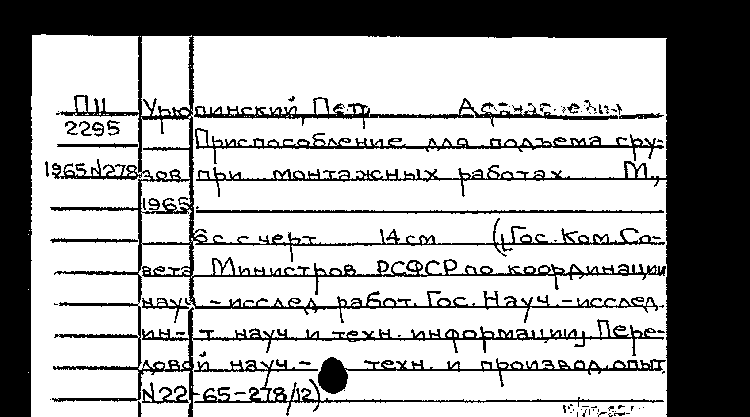 ПИ Урюпинский, Петр Афанасьевич
2295 Приспособление для подъема гру-
1965 N278 зов при монтажных работах. М.,
1965.
6 с. с черт 14 см ([Гос. Ком. Со-
вета Министров РСФСР по координации
науч - исслед работ. Гос. Науч.-исслед.
ин-т науч. и техн. информации]. Пере-
довой науч.- техн. и производ. опыт
N22-65-278/12).